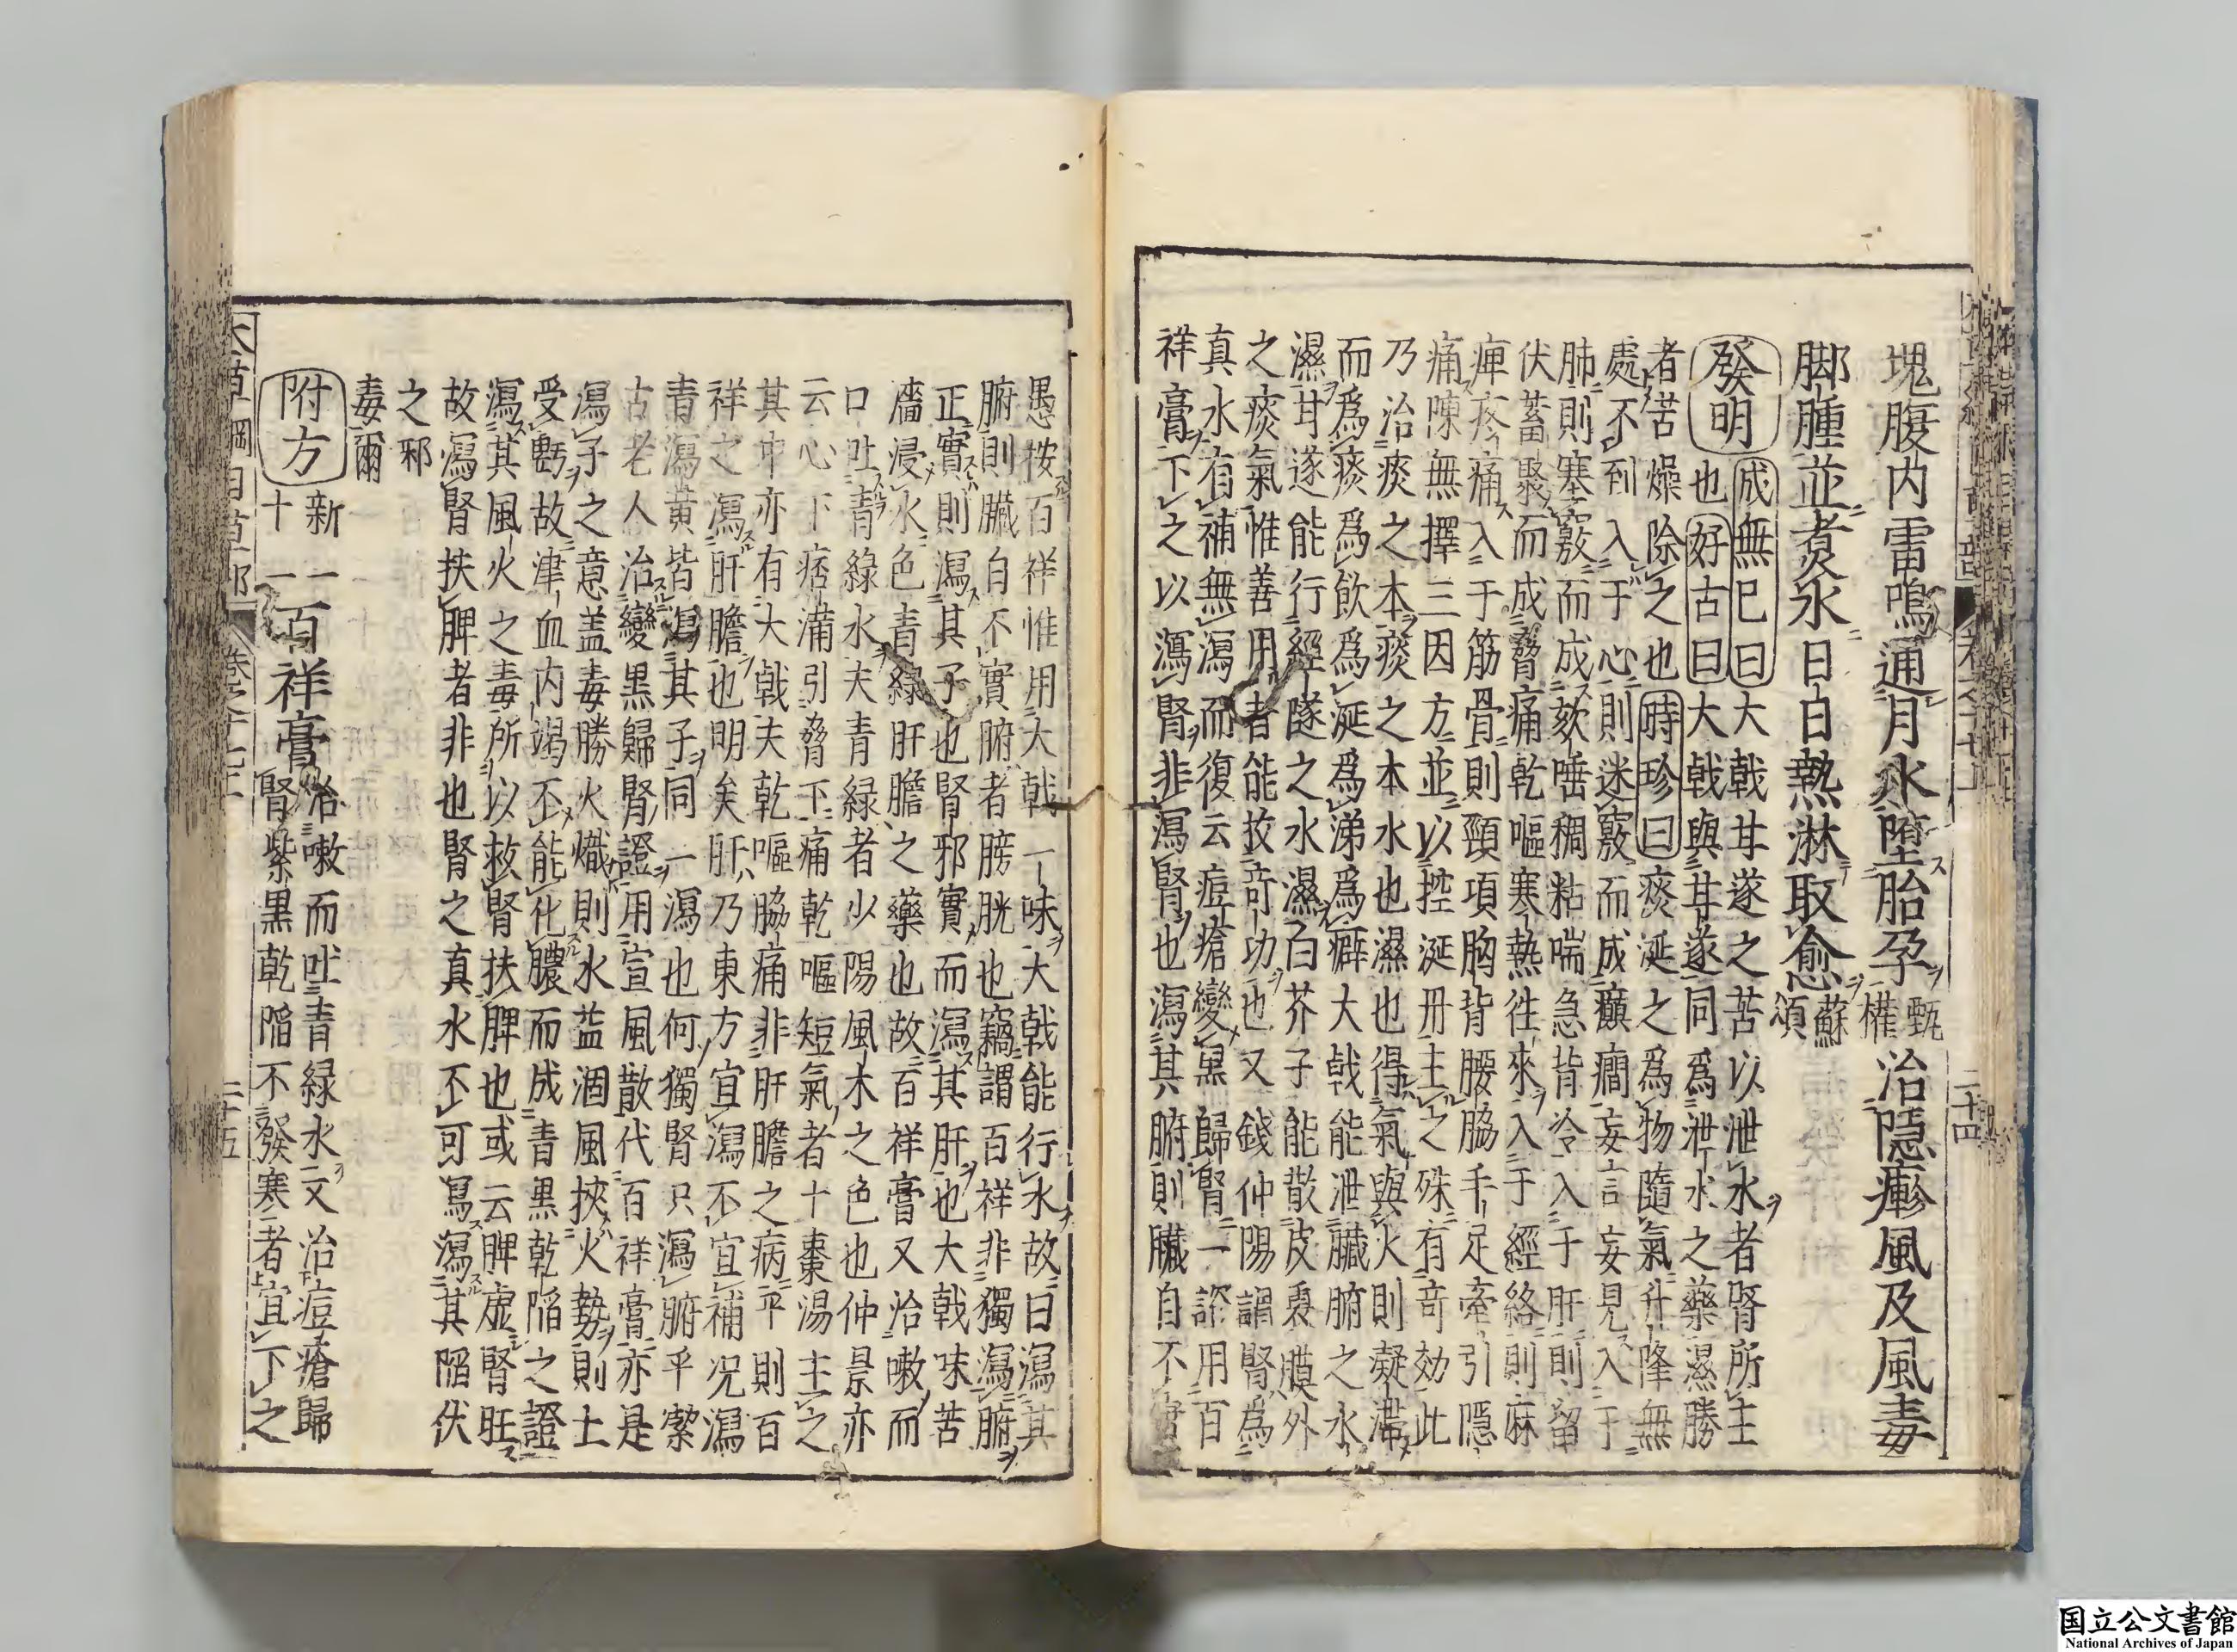 塊腹内雷鳴通月水墮胎孕甄權治隱㾦風及風毒
脚腫並煑水日日熱淋取愈蘇頌
發明成無已曰大戟甘遂之苦以泄水者腎所主
也好古曰大戟與甘遂同爲泄水之藥濕勝
者苦燥除之也時珍曰痰涎之爲物隨氣升降無
處不到入于心則迷竅而成癲癎妄言妄見入于
肺則塞竅而成欬唾稠粘喘急背冷入于肝則留
伏蓄聚而成脅痛乾嘔寒熱徃來入于經絡則麻
痺疼痛入于筋骨則頸項胸背腰脇手足牽引隱
痛陳無擇三因方並以控涎丹主之殊有奇効此
乃治痰之本痰之本水也濕也得氣與火則凝滯
而爲痰爲飲爲涎爲涕爲癖大戟能泄臟腑之水
濕甘遂能行經隧之水濕白芥子能散皮裏膜外
之痰氣惟善用者能收奇功也又錢仲陽謂腎爲
真水有補無瀉而復云痘瘡變黑歸腎一證用百
祥膏下之以瀉腎非瀉腎也瀉其腑則臟自不實
愚按百祥惟用大戟一味大戟能行水故曰瀉其
腑則臟自不實腑者膀胱也竊謂百祥非獨瀉腑
正實則瀉其子也腎邪實而瀉其肝也大戟味苦
濇浸水色青綠肝膽之藥也故百祥膏又治嗽而
口吐青綠水夫青緑者少陽風木之色也仲景亦
云心下痞滿引脅下痛乾嘔短氣者十棗湯主之
其中亦有大戟夫乾嘔脇痛非肝膽之病乎則百
祥之瀉肝膽也明矣肝乃東方宜瀉不宜補况瀉
青瀉黄皆瀉其子同一瀉也何獨腎只瀉腑乎潔
古老人治變黑歸腎證用宣風散代百祥膏亦是
瀉子之意蓋毒勝火熾則水益涸風挾火勢則土
受虧故津血内竭不能化膿而成青黑乾陷之證
瀉其風火之毒所以救腎扶脾也或云脾虚腎旺
故瀉腎扶脾者非也腎之真水不可瀉瀉其陷伏
之邪
毒爾
附方新一十一百祥膏治嗽而吐青緑水又治痘瘡歸
腎紫黒乾陷不發寒者宜下之
二十四
二十五
国立公文書館
National Archives of Japan